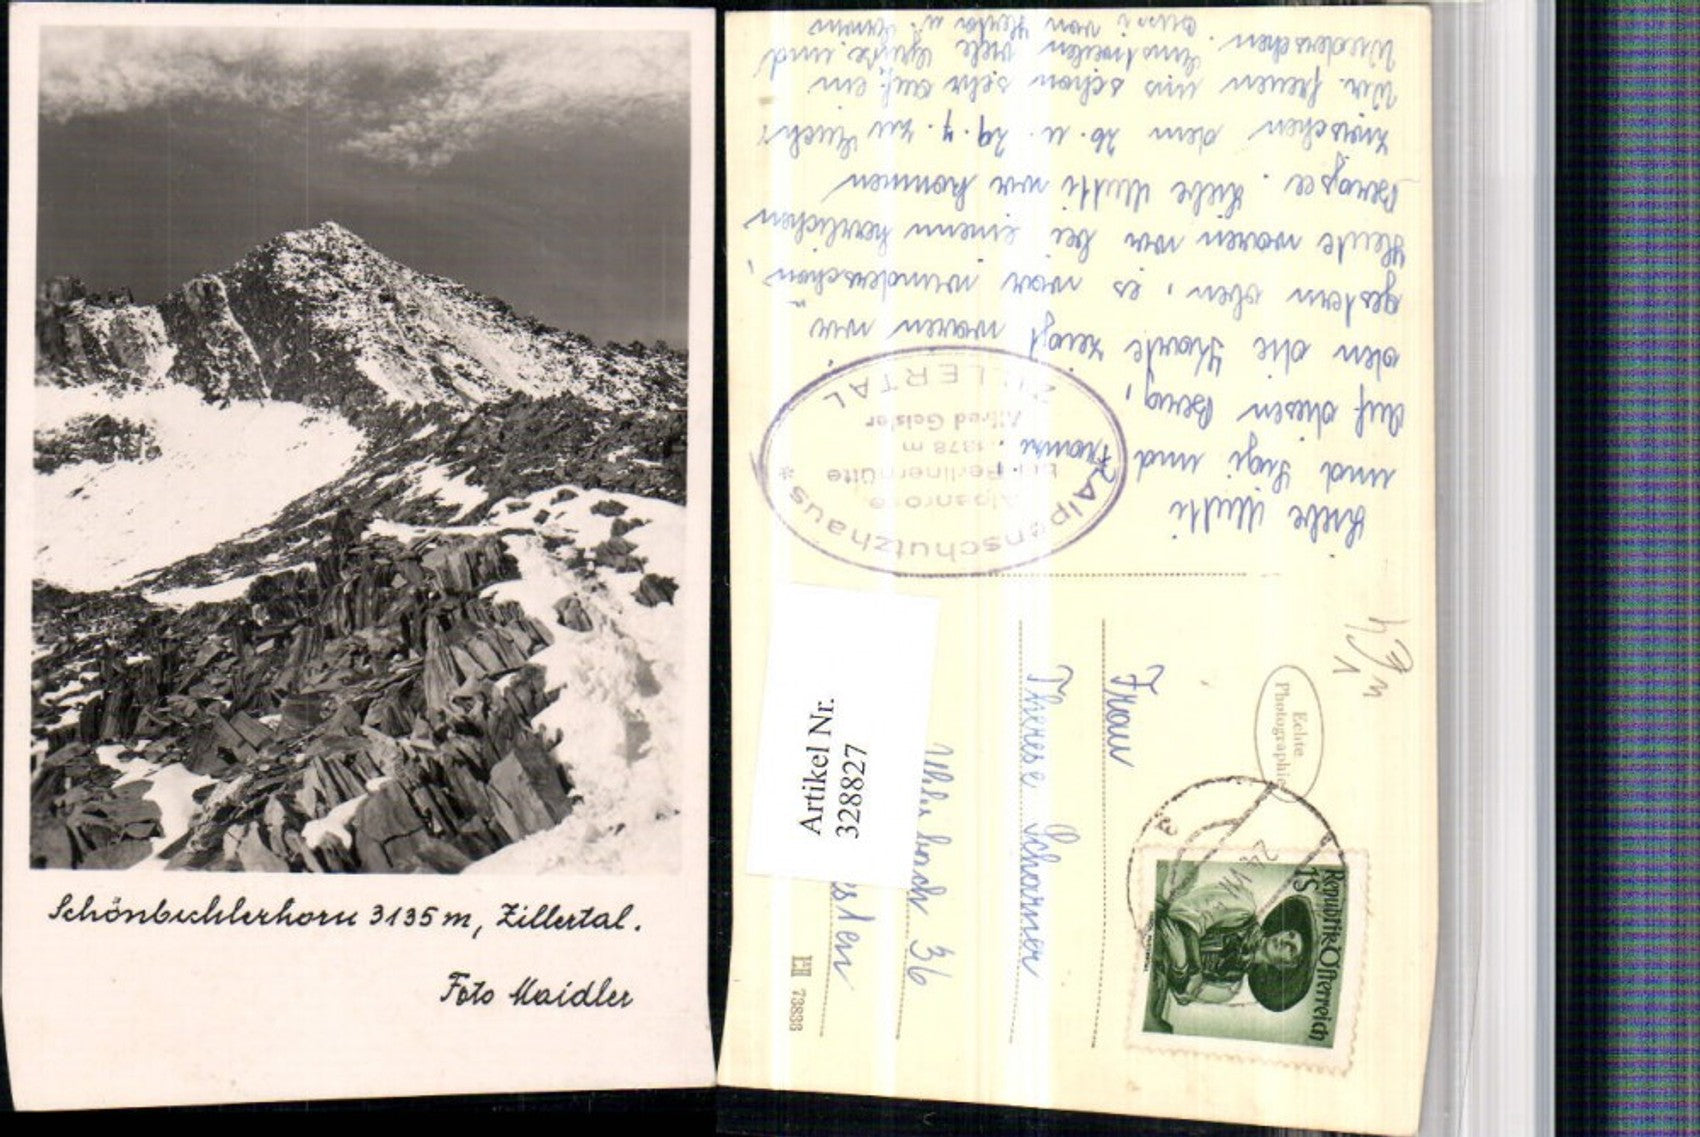 Schönbichlerhorn 3135 m, Zillertal.
Foto Maidler
Liebe Mutti
und Sigi und
auf diesen Berg,
den die Karte zeigt waren wir
gestern oben, es war wunderschön,
Heute waren wir bei einem herrlichen
Bergsee. Liebe Mutti wir kommen
zwischen dem 26. u. 29. 7. zu Euch,
Wir freuen uns schon sehr auf ein
Wiedersehen. Inzwischen viele Grüße und
Bussi von
Alpenschutzhaus
Alpenrose
b. d. Berlinerhütte
1878 m
Alfred Geisler
ZILLERTAL
Echte
Photographie
Republik Österreich
1S
24. VII.
Frau
Therese Scharner
36
73838
Artikel Nr.
328827